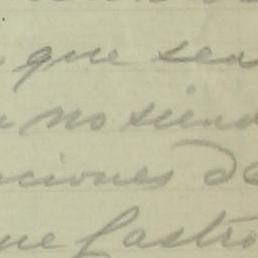 que sea
no siend
ciones de
ue Castro